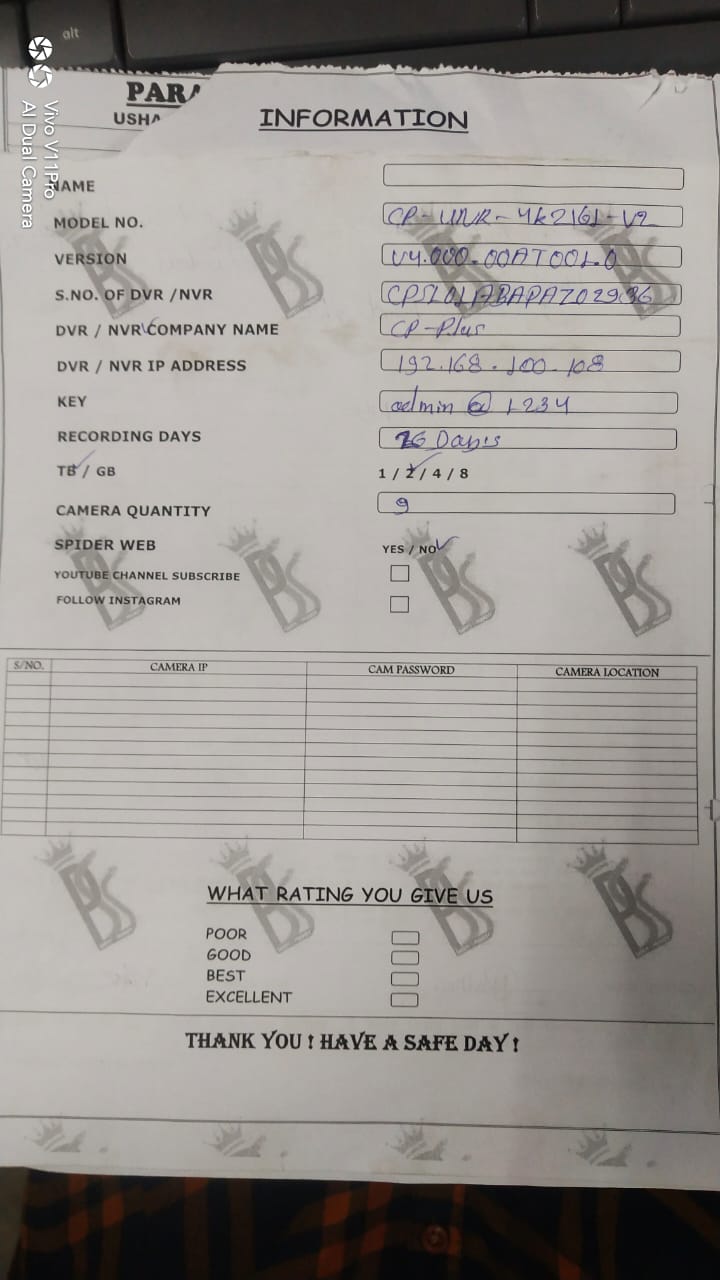 alt
Vivo V11Pro
AI Dual Camera
PARA
USHA
INFORMATION
NAME
MODEL NO. CP-UNR-4K2161-V2
VERSION V4.000.00AT001.0
S.NO. OF DVR /NVR
DVR / NVR COMPANY NAME CP-Plus
DVR / NVR IP ADDRESS 192.168.100.108
KEY admin @ 1234
RECORDING DAYS 26 Days
TB / GB 1 / 2 / 4 / 8
CAMERA QUANTITY 9
SPIDER WEB YES / NO
YOUTUBE CHANNEL SUBSCRIBE
FOLLOW INSTAGRAM
S/NO. CAMERA IP CAM PASSWORD CAMERA LOCATION
WHAT RATING YOU GIVE US
POOR
GOOD
BEST
EXCELLENT
THANK YOU ! HAVE A SAFE DAY !